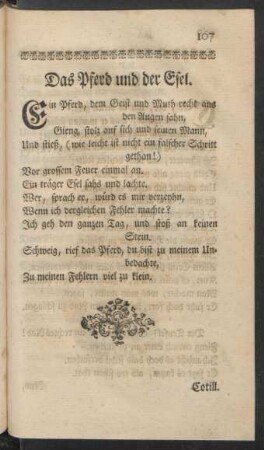 107
Das Pferd und der Esel.
Ein Pferd, dem Geist und Muth recht aus
den Augen sahn,
Gieng, stolz auf sich und seinen Mann,
Und stieß, (wie leicht ist nicht ein falscher Schritt
gethan!)
Vor grossem Feuer einmal an.
Ein träger Esel sahs und lachte.
Wer, sprach er, würd es mir verzeyhn,
Wenn ich dergleichen Fehler machte?
Ich geh den ganzen Tag, und stoß an keinen
Stein.
Schweig, rief das Pferd, du bist zu meinem Un-
bedachte,
Zu meinen Fehlern viel zu klein.
Cotill.